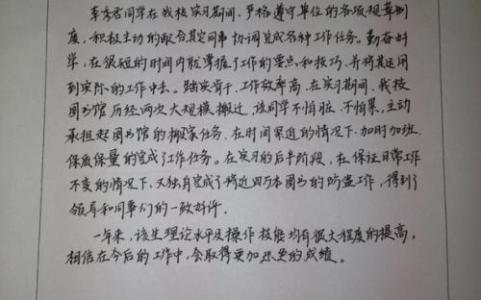 李秀君同学在我校实习期间,严格遵守单位的各项规章制
度,积极主动的配合其它同事协调完成各种工作任务。勤奋好
学,在很短的时间内就掌握了工作的要点和技巧,并将其运用
到实际的工作中去。踏实肯干,工作效率高。在实习期间,我校
图书馆历经两次大规模搬迁,该同学不怕脏、不怕累,主动
承担起图书馆的搬家任务,在时间紧迫的情况下,加时加班,
保质保量的完成了工作任务。在实习的后半阶段,在保证日常工作
不变的情况下,又独自完成了将近四万本图书的防盗工作,得到了
领导和同事们的一致好评。
一年来,该生理论水平及操作技能均有很大程度的提高,
相信在今后的工作中,会取得更加的成绩。